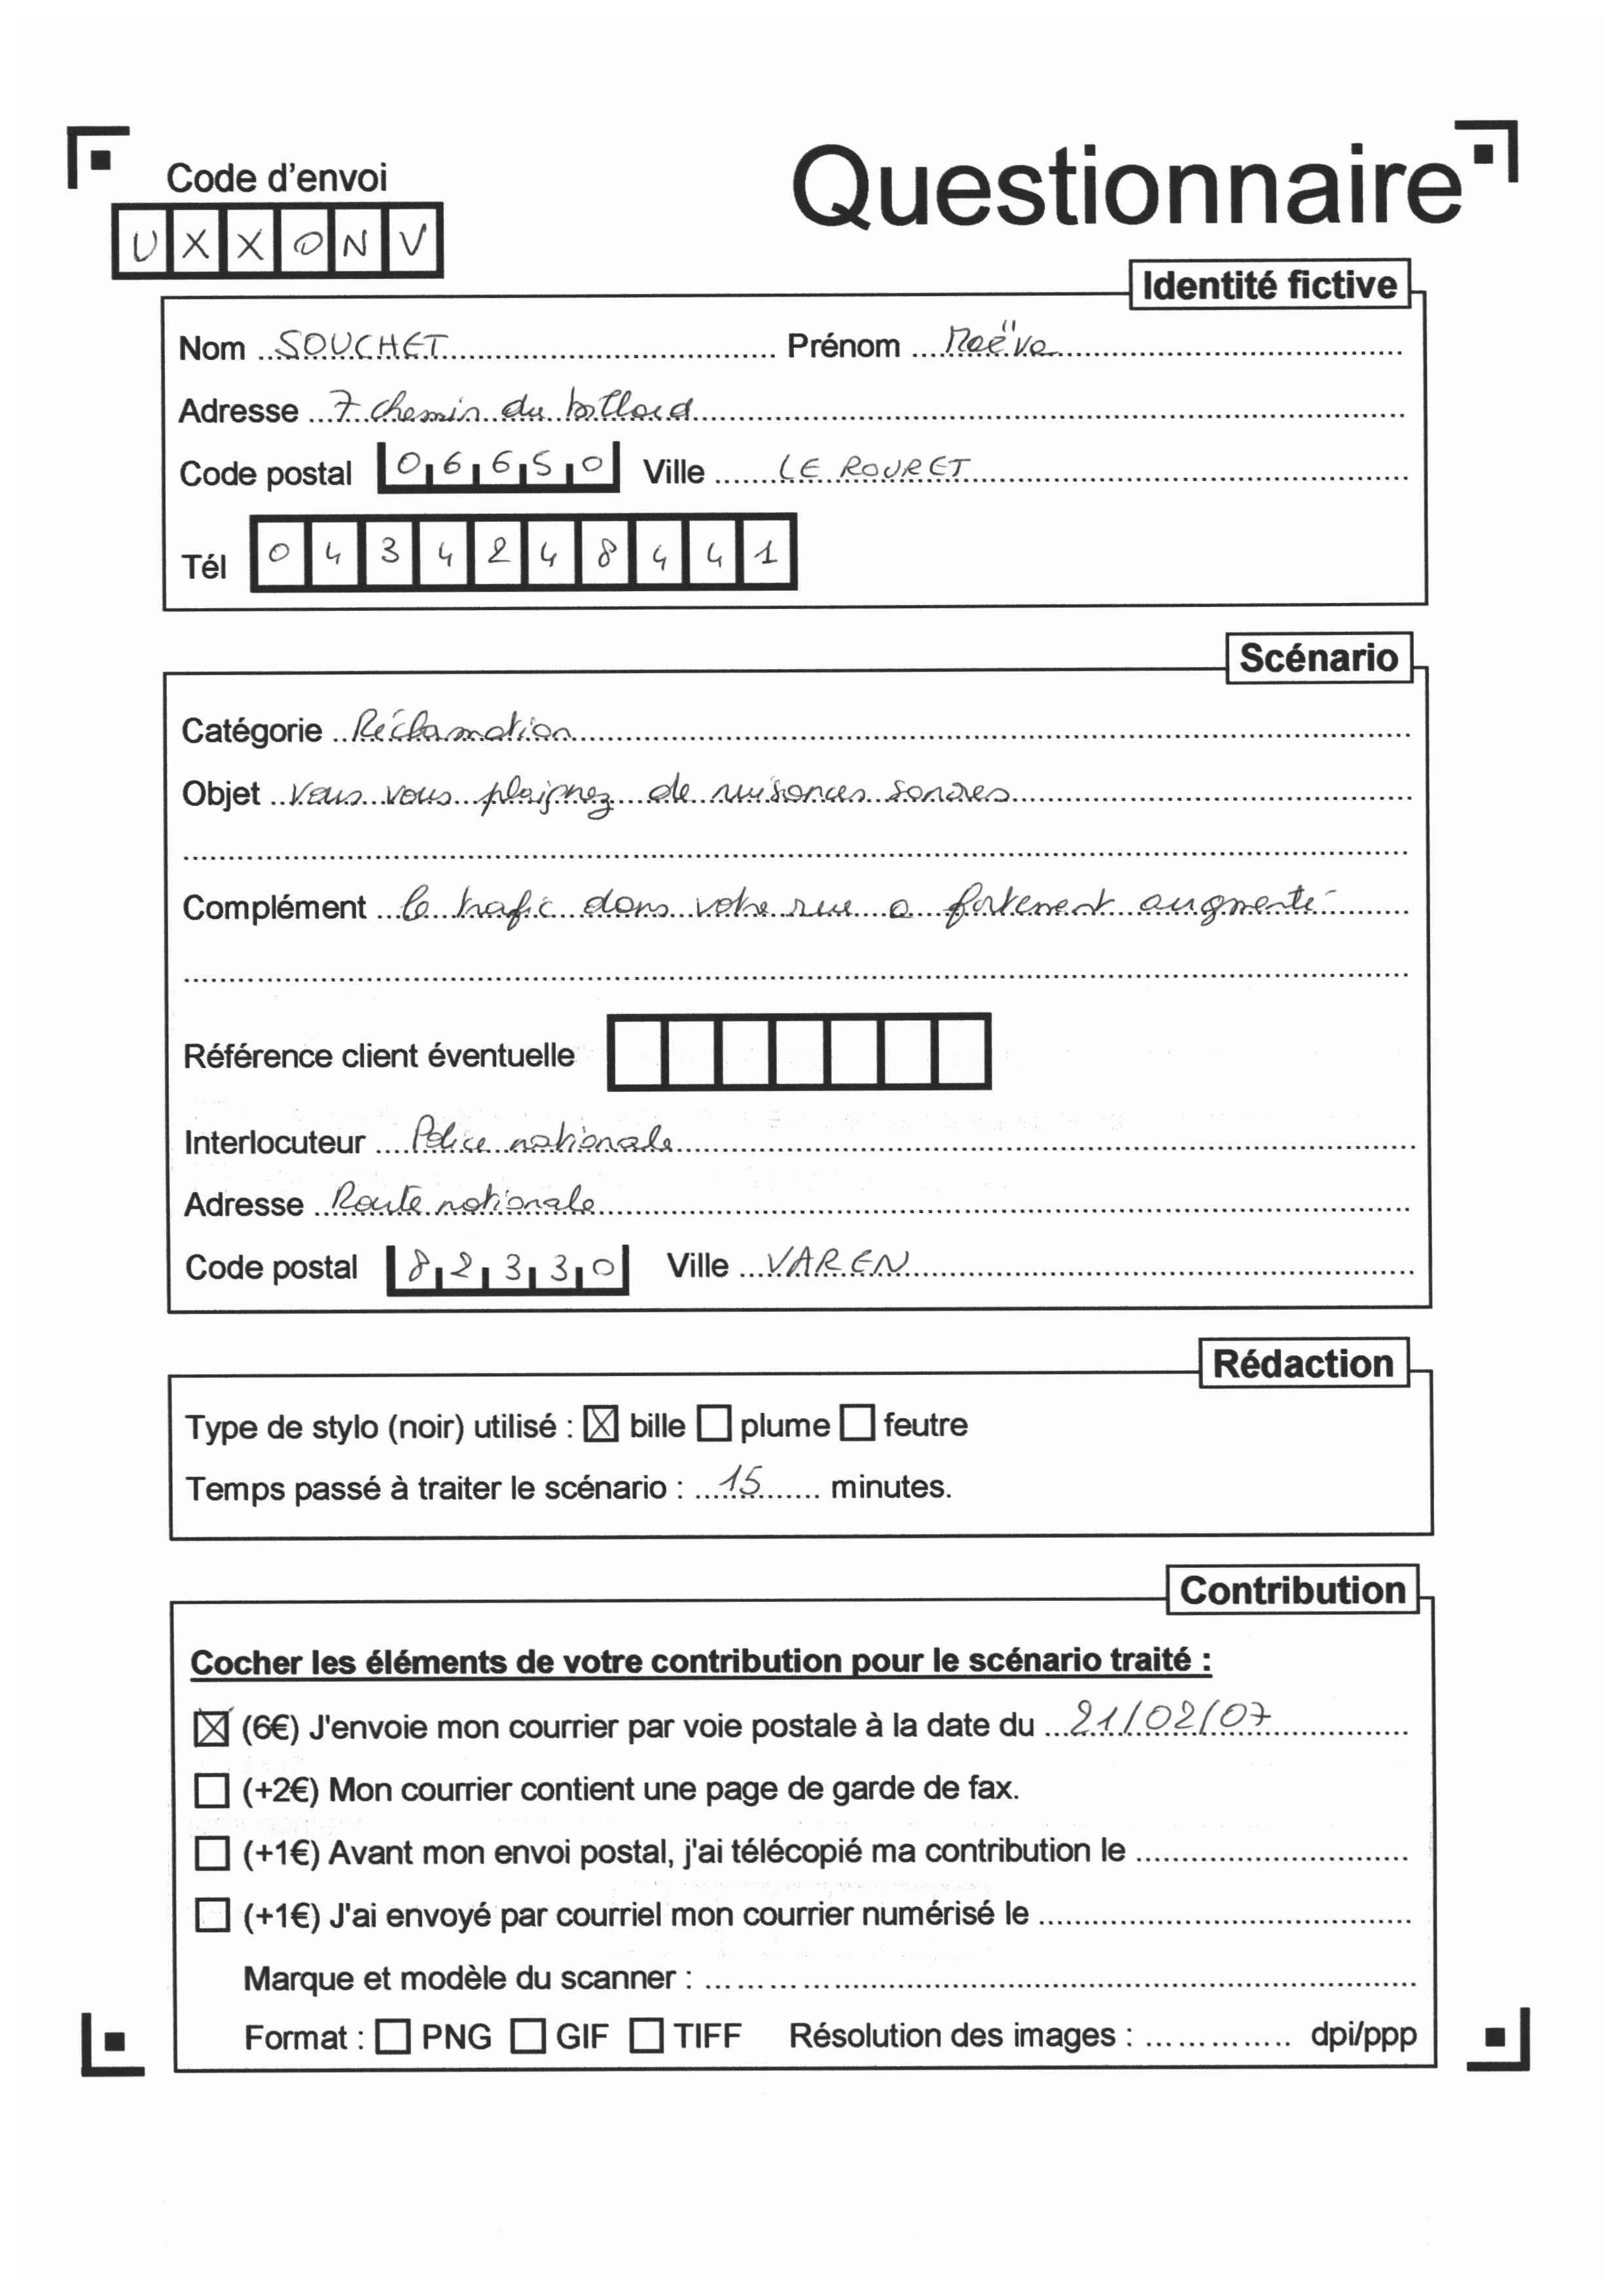 Code d'envoi
Questionnaire
UXXONV
Identité fictive
Nom SOUCHET Prénom Maëva
Adresse 7 chemin du
Code postal 06650 Ville LE ROURET
Tél 0434248441
Scénario
Catégorie Réclamation
Objet Vous vous plaignez de nuisances sonores
Complément le trafic dans votre rue a fortement augmenté
Référence client éventuelle
Interlocuteur Police nationale
Adresse Route nationale
Code postal 82330 Ville VAREN
Rédaction
Type de stylo (noir) utilisé : ☒ bille ☐ plume ☐ feutre
Temps passé à traiter le scénario : 15 minutes.
Contribution
Cocher les éléments de votre contribution pour le scénario traité :
☒ (6€) J'envoie mon courrier par voie postale à la date du 21/02/07
☐ (+2€) Mon courrier contient une page de garde de fax.
☐ (+1€) Avant mon envoi postal, j'ai télécopié ma contribution le
☐ (+1€) J'ai envoyé par courriel mon courrier numérisé le
Marque et modèle du scanner :
Format : ☐ PNG ☐ GIF ☐ TIFF Résolution des images : dpi/ppp